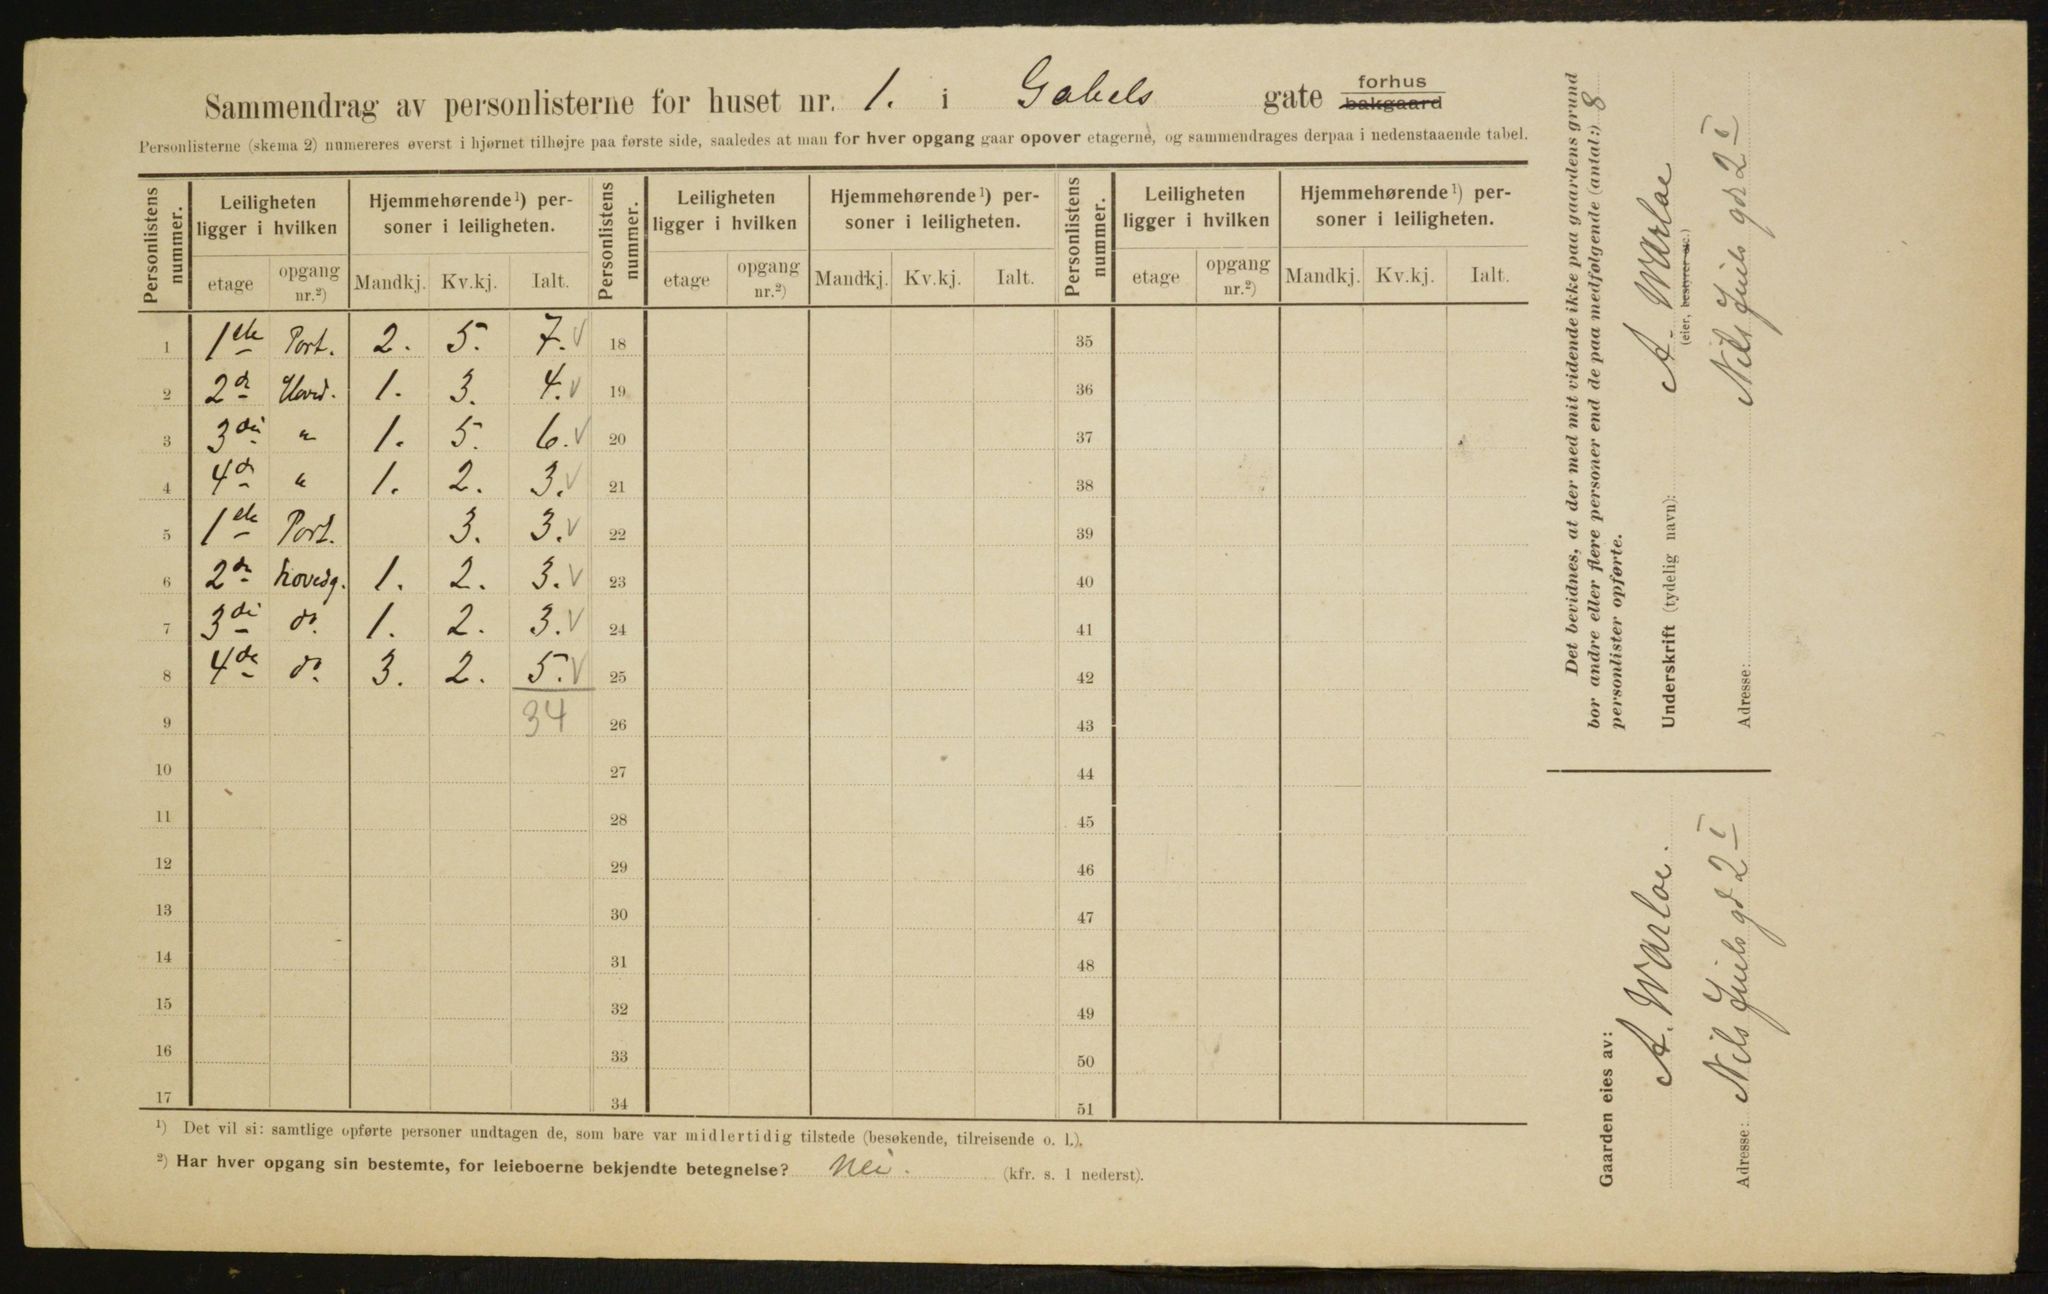 Sammendrag av personlisterne for huset nr. 1. i Gabels gate forhus bakgaard
Personlisterne (skema 2) numereres øverst i hjørnet tilhøjre paa første side, saaledes at man for hver opgang gaar opover etagerne, og sammendrages derpaa i nedenstaaende tabel.
Personlistens nummer. Leiligheten ligger i hvilken Hjemmehørende¹) personer i leiligheten. Personlistens nummer. Leiligheten ligger i hvilken Hjemmehørende¹) personer i leiligheten. Personlistens nummer. Leiligheten ligger i hvilken Hjemmehørende¹) personer i leiligheten.
etage opgang nr.²) Mandkj. Kv.kj. Ialt. etage opgang nr.²) Mandkj. Kv.kj. Ialt. etage opgang nr.²) Mandkj. Kv.kj. Ialt.
1 1ste Port. 2. 5. 7. 18 35
2 2de Hoved. 1. 3. 4. 19 36
3 3die " 1. 5. 6. 20 37
4 4de " 1. 2. 3. 21 38
5 1ste Port. 3. 3. 22 39
6 2de hovedg. 1. 2. 3. 23 40
7 3die do. 1. 2. 3. 24 41
8 4de do. 3. 2. 5. 25 42
9 34 26 43
10 27 44
11 28 45
12 29 46
13 30 47
14 31 48
15 32 49
16 33 50
17 34 51
¹) Det vil si: samtlige opførte personer undtagen de, som bare var midlertidig tilstede (besøkende, tilreisende o. l.).
²) Har hver opgang sin bestemte, for leieboerne bekjendte betegnelse? Nei. (kfr. s. 1 nederst).
Det bevidnes, at der med mit vidende ikke paa gaardens grund
bor andre eller flere personer end de paa medfølgende (antal:) 8
personlister opførte.
Underskrift (tydelig navn): A. Warloe
(eier, bestyrer etc.)
Adresse: Nils Juels gd 2 I
Gaarden eies av:
A. Warloe.
Adresse: Nils Juels gd 2 I